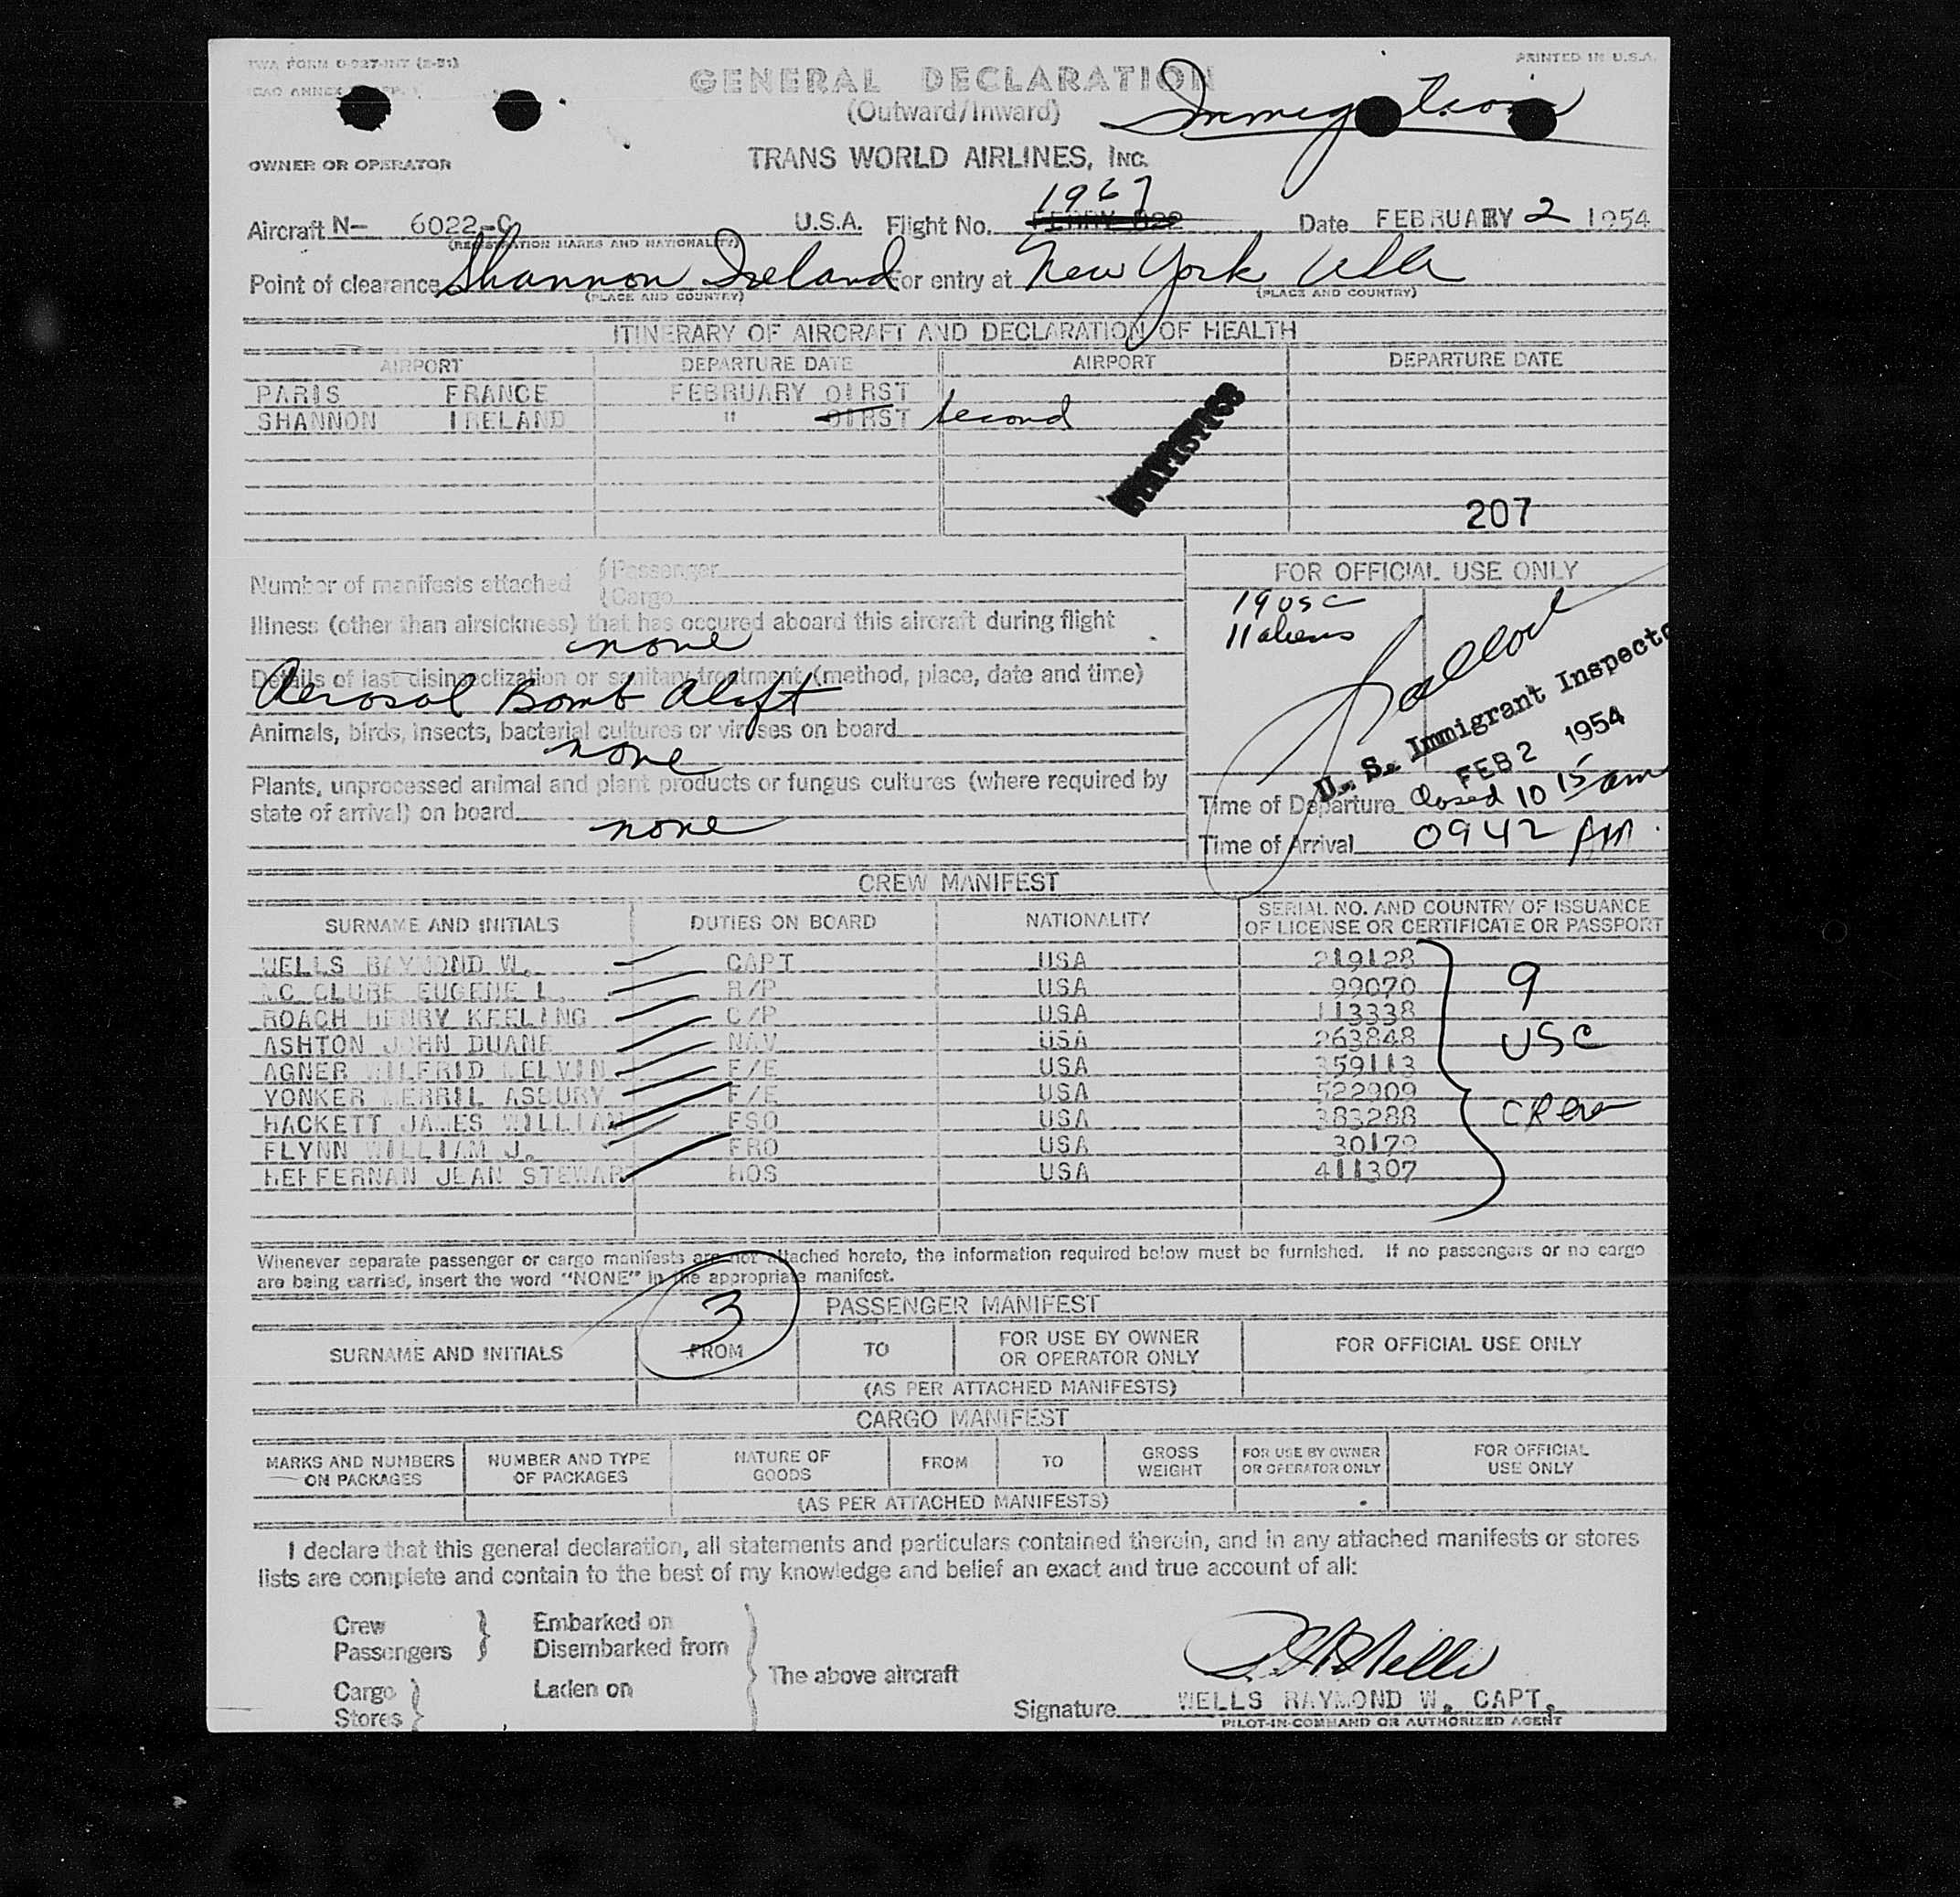 TWA FORM 0-927-INT (2-51)
PRINTED IN U.S.A.
ICAO ANNEX
GENERAL DECLARATION
(Outward/Inward)
Immigration
OWNER OR OPERATOR
TRANS WORLD AIRLINES, INC.
1967
Aircraft N- 6022-C U.S.A. Flight No. FERRY 822 Date FEBRUARY 2 1954
(REGISTRATION MARKS AND NATIONALITY)
Point of clearance Shannon Ireland For entry at New York USA
(PLACE AND COUNTRY) (PLACE AND COUNTRY)
ITINERARY OF AIRCRAFT AND DECLARATION OF HEALTH
AIRPORT DEPARTURE DATE AIRPORT DEPARTURE DATE
PARIS FRANCE FEBRUARY 01RST
SHANNON IRELAND " 01RST second
207
Number of manifests attached (Passenger
(Cargo
FOR OFFICIAL USE ONLY
19 USC
11 aliens
Illness (other than airsickness) that has occured aboard this aircraft during flight
none
Details of last disinsectization or sanitary treatment (method, place, date and time)
Aerosol Bomb Aloft
Animals, birds, insects, bacterial cultures or viruses on board
none
Plants, unprocessed animal and plant products or fungus cultures (where required by
state of arrival) on board
none
U. S. Immigrant Inspector
FEB 2 1954
Time of Departure Closed 10 15 am
Time of Arrival 0942 AM
CREW MANIFEST
SURNAME AND INITIALS DUTIES ON BOARD NATIONALITY SERIAL NO. AND COUNTRY OF ISSUANCE
OF LICENSE OR CERTIFICATE OR PASSPORT
WELLS RAYMOND W. CAPT USA 219128
MC CLURE EUGENE L. R/P USA 99070
ROACH HENRY KEELING C/P USA 113338
ASHTON JOHN DUANE NAV USA 263848
AGNER WILFRID MELVIN F/E USA 359113
YONKER MERRIL ASBURY F/E USA 522909
HACKETT JAMES WILLIAM FSO USA 383288
FLYNN WILLIAM J. FRO USA 30179
HEFFERNAN JEAN STEWAR HOS USA 411307
9
USC
Crew
Whenever separate passenger or cargo manifests are not attached hereto, the information required below must be furnished. If no passengers or no cargo
are being carried, insert the word "NONE" in the appropriate manifest.
3
PASSENGER MANIFEST
SURNAME AND INITIALS FROM TO FOR USE BY OWNER
OR OPERATOR ONLY FOR OFFICIAL USE ONLY
(AS PER ATTACHED MANIFESTS)
CARGO MANIFEST
MARKS AND NUMBERS
ON PACKAGES NUMBER AND TYPE
OF PACKAGES NATURE OF
GOODS FROM TO GROSS
WEIGHT FOR USE BY OWNER
OR OPERATOR ONLY FOR OFFICIAL
USE ONLY
(AS PER ATTACHED MANIFESTS)
I declare that this general declaration, all statements and particulars contained therein, and in any attached manifests or stores
lists are complete and contain to the best of my knowledge and belief an exact and true account of all:
Crew
Passengers Embarked on
Disembarked from
Cargo
Stores Laden on
The above aircraft
Signature WELLS RAYMOND W. CAPT.
PILOT-IN-COMMAND OR AUTHORIZED AGENT